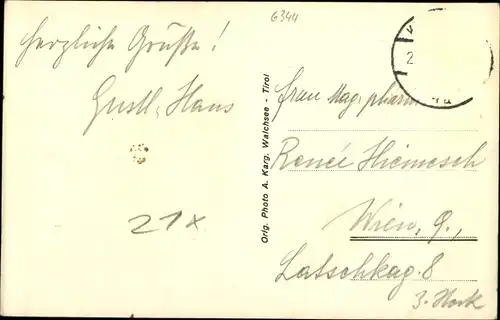 6344
Herzliche Grüße!
Gustl, Hans
21x
Orig. Photo A. Karg, Walchsee - Tirol
Frau Mag. pharm.
Renée Hiemesch
Wien, 9.,
Latschkag. 8
3. Stock